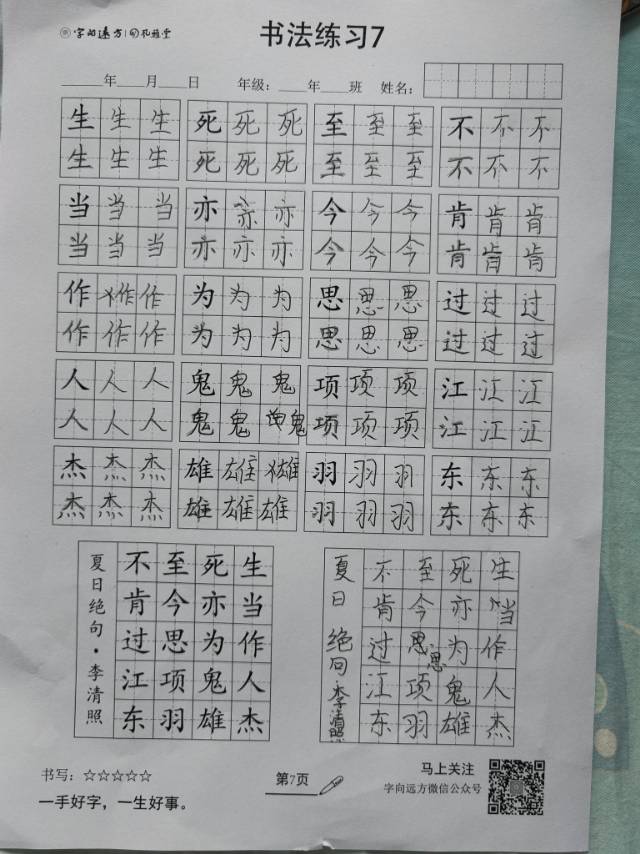 字向远方
书法练习7
年 月 日 年级: 年 班 姓名:
生生生 死死死 至至至 不不不
生生生 死死死 至至至 不不不
当当当 亦亦亦 今今今 肯肯肯
当当当 亦亦亦 今今今 肯肯肯
作作作 为为为 思思思 过过过
作作作 为为为 思思思 过过过
人人人 鬼鬼鬼 项项项 江江江
人人人 鬼鬼鬼 项项项 江江江
杰杰杰 雄雄雄 羽羽羽 东东东
杰杰杰 雄雄雄 羽羽羽 东东东
夏日绝句·李清照
生当作人杰
死亦为鬼雄
至今思项羽
不肯过江东
夏日绝句·李清照
生当作人杰
死亦为鬼雄
至今思项羽
不肯过江东
书写:☆☆☆☆☆
一手好字，一生好事。
第7页
马上关注
字向远方微信公众号